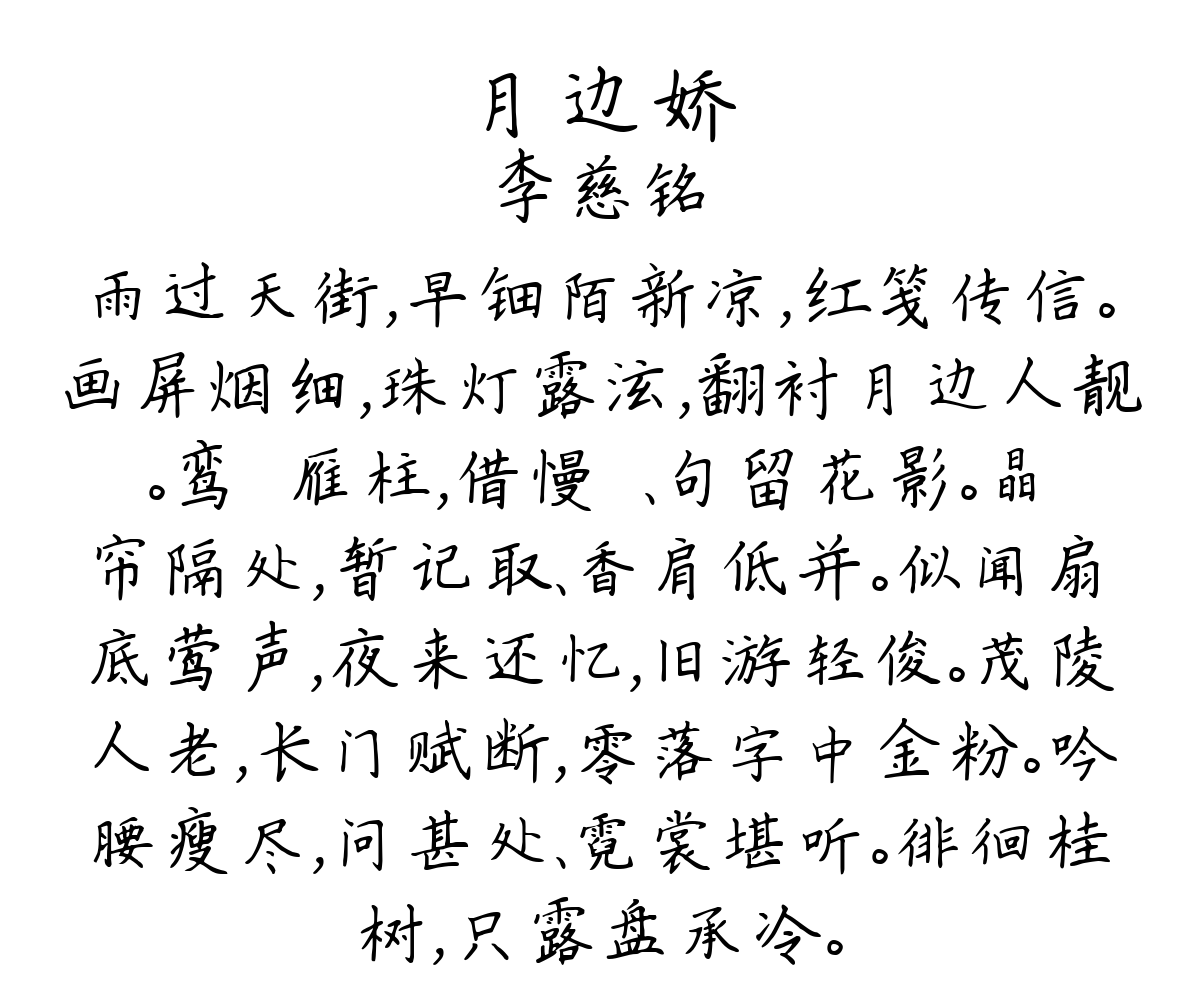 月边娇
李慈铭
雨过天街,早钿陌新凉,红笺传信。
画屏烟细,珠灯露泫,翻衬月边人靓
。鸾 雁柱,借慢 、句留花影。晶
帘隔处,暂记取、香肩低并。似闻扇
底莺声,夜来还忆,旧游轻俊。茂陵
人老,长门赋断,零落字中金粉。吟
腰瘦尽,问甚处、霓裳堪听。徘徊桂
树,只露盘承冷。